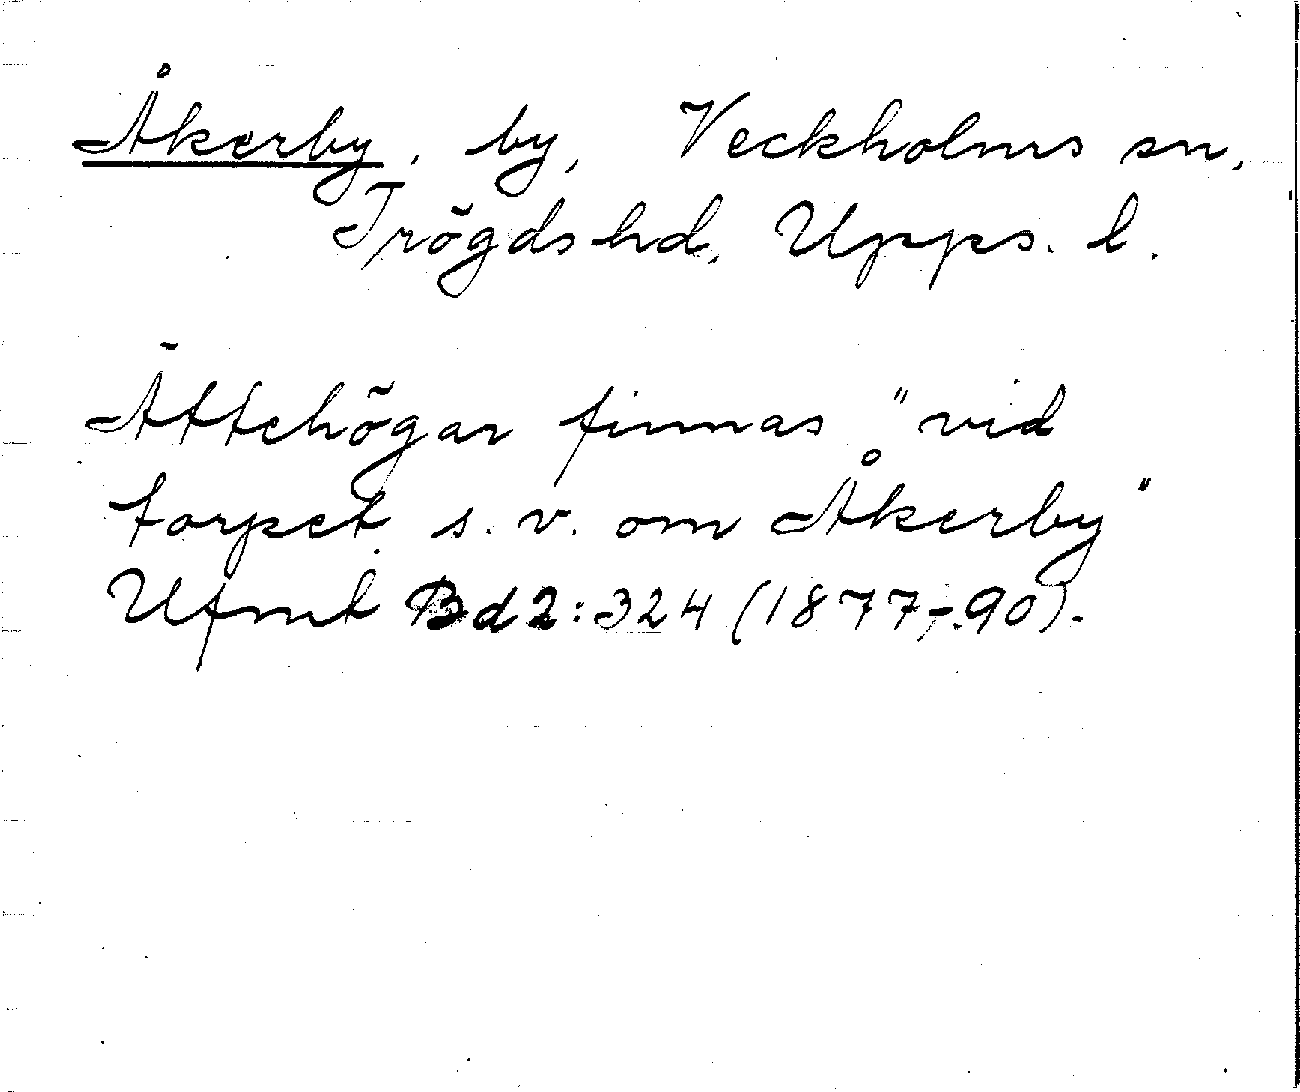 Åkerby, by, Veckholms sn,
Trögds hd, Upps. l.
Ättehögar finnas "vid
torpet s. v. om Åkerby"
Ufmt Bd 2:324 (1877-90).